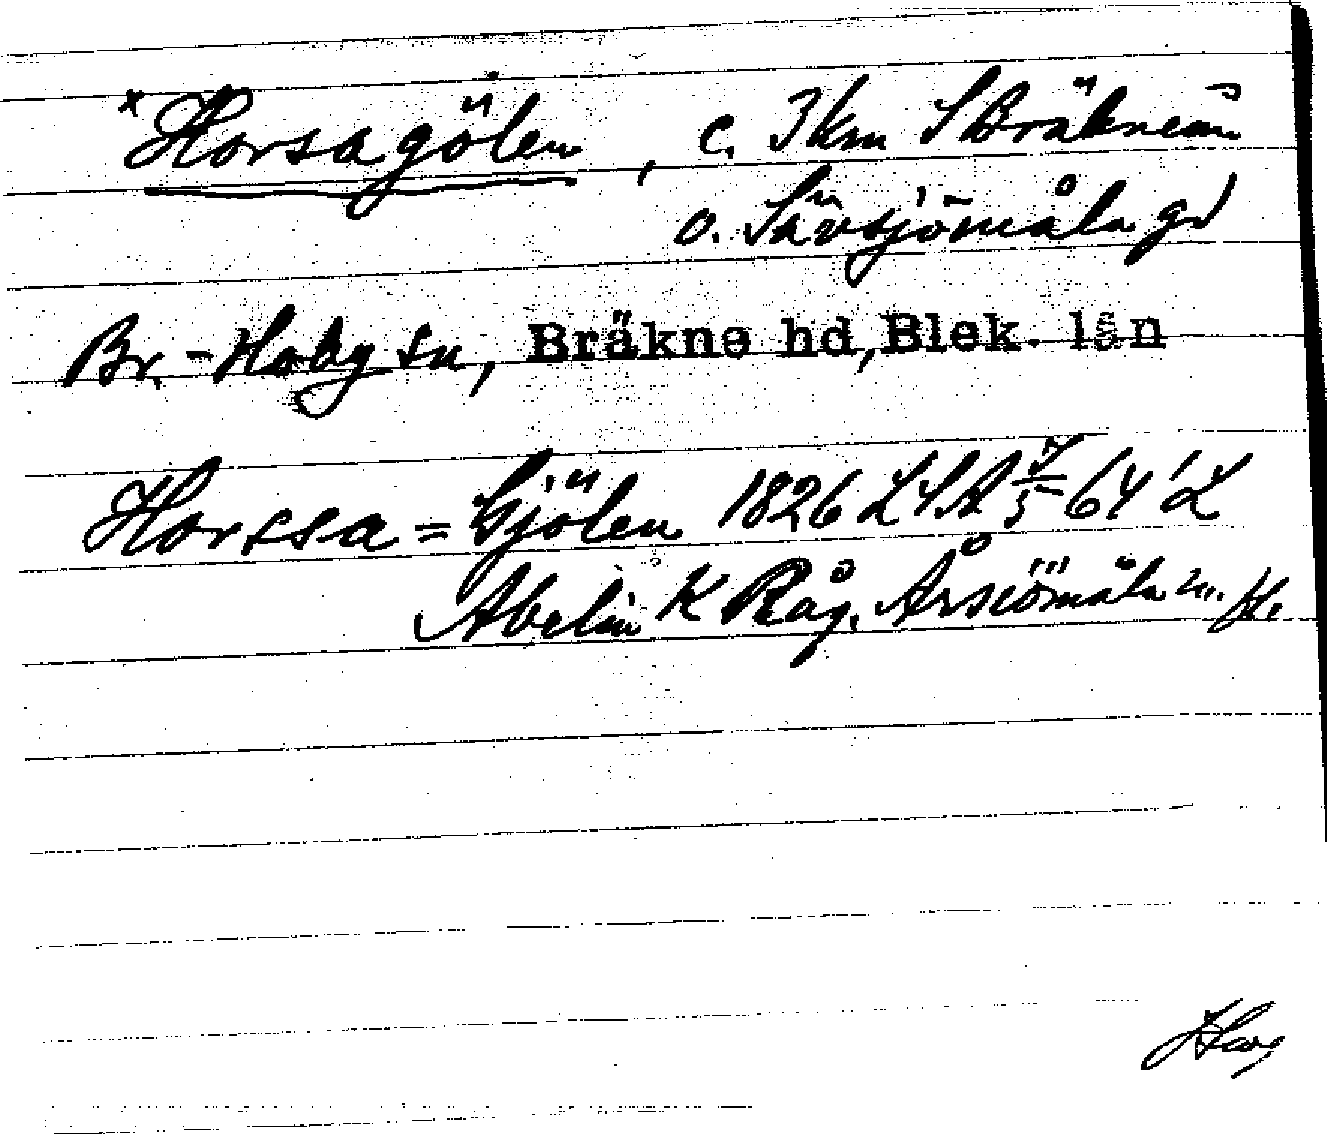 *Horsagölen, c. 3 km S Bräkneån
o. Sävsjömåla gd
Br.-Hoby sn, Bräkne hd, Blek. län
Horssa=Gjölen 1826 LSA 7/5-64'L
Abelin K Råg. Årsiömåla m. fl.